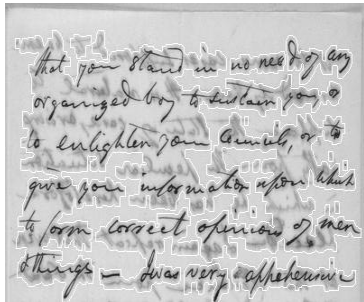 that you stand in no need of any
organized boy to sustain you &
to enlighten your Councils, or to
give you information upon which
to form correct opinions of men
& things — I was very apprehensive